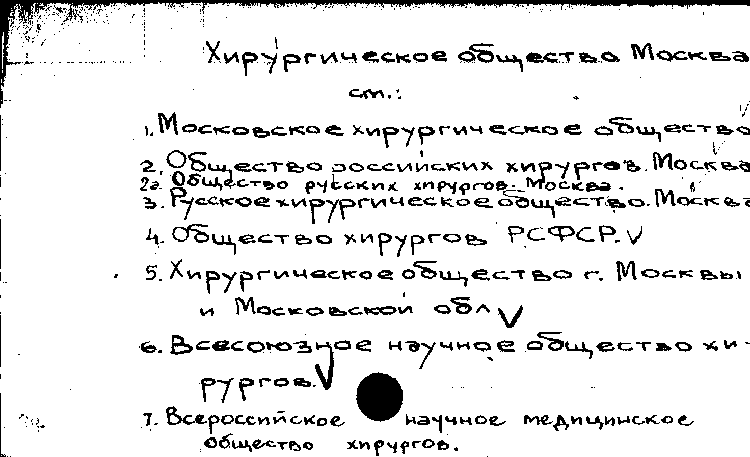 Хирургическое общество Москва
ст.:
1. Московское хирургическое общество
2. Общество российских хирургов. Москва
2а. Общество русских хирургов. Москва.
3. Русское хирургическое общество. Москва
4. Общество хирургов РСФСР. V
5. Хирургическое общество г. Москвы
и Московской обл V
6. Всесоюзное научное общество хи-
рургов. V
7. Всероссийское научное медицинское
общество хирургов.